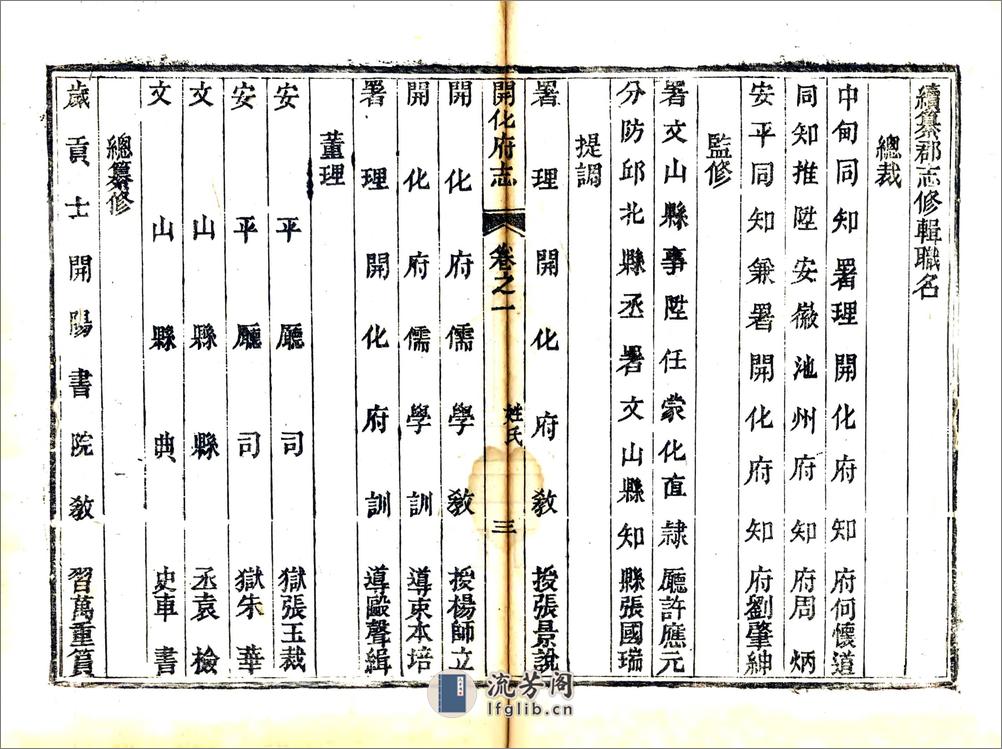 續纂郡志修輯職名
總裁
中甸同知署理開化府知府何懷道
同知推陞安徽池州府知府周炳
安平同知兼署開化府知府劉肇紳
監修
署文山縣事陞任蒙化直隸廳許應元
分防邱北縣丞署文山縣知縣張國瑞
提調
署理開化府教授張景說
開化府志 卷之一 姓氏 三
開化府儒學教授楊師立
開化府儒學訓導束本培
署理開化府訓導歐聲緝
董理
安平廳司獄張玉裁
安平廳司獄朱華
文山縣縣丞袁檢
文山縣典史車書
總纂修
歲貢士開陽書院教習萬重篔
流芳阁
lfglib.cn